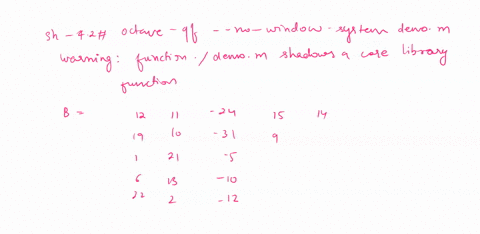 sh-4.2# octave -qf --no-window-system demo.m
warning: function ./demo.m shadows a core library
function
B =
12 11 -24 15 14
19 10 -31 9
1 21 -5
6 13 -10
22 2 -12